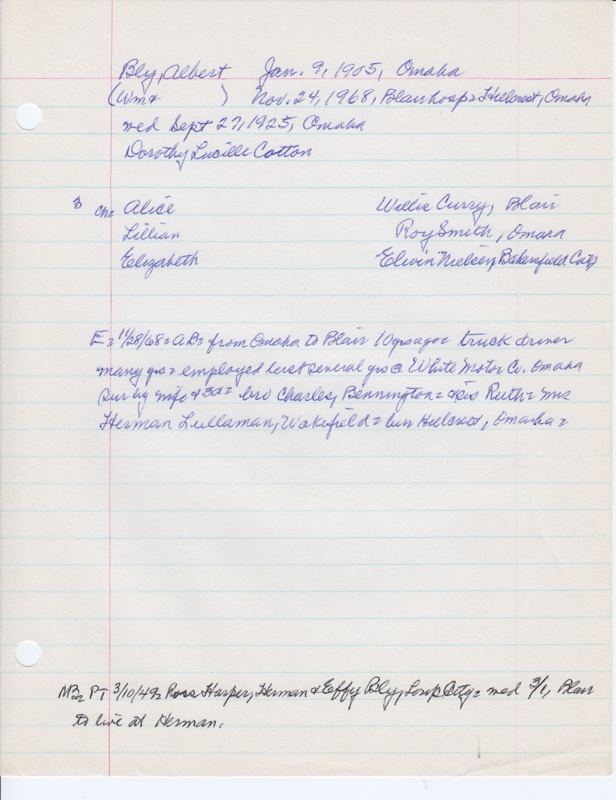 Bly, Albert Jan. 9, 1905, Omaha
(Wm & ) Nov. 24, 1968, Blair hosp = Hillcrest, Omaha
wed Sept 27, 1925, Omaha
Dorothy Lucille Cotton
3 ch = Alice Willie Curry, Blair
Lillian Roy Smith, Omaha
Elizabeth Elwin Nielsen, Bakersfield Calif
E = 11/28/68 = AB = from Omaha to Blair 10 yrs ago = truck driver
many yrs = employed last several yrs @ White Motor Co. Omaha
sur by wife & 3d = bro Charles, Bennington = sis Ruth = Mrs
Herman Lullaman, Wakefield = bur Hillcrest, Omaha =
PT 3/10/49 = Harper, Herman & Effy Bly, Loup City = wed 3/1, Blair
to live at Herman.